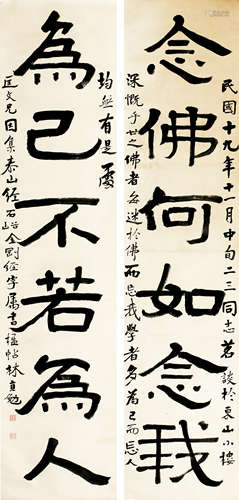 念佛何如念我
民國十九年十一月中旬二三同志茗談於東山小樓
深慨于世之佛者每迷於佛而忘我學者多為己而忘人
為己不若為人
均無有是處
匡文兄因集泰山經石峪金剛經字屬書楹帖林直勉